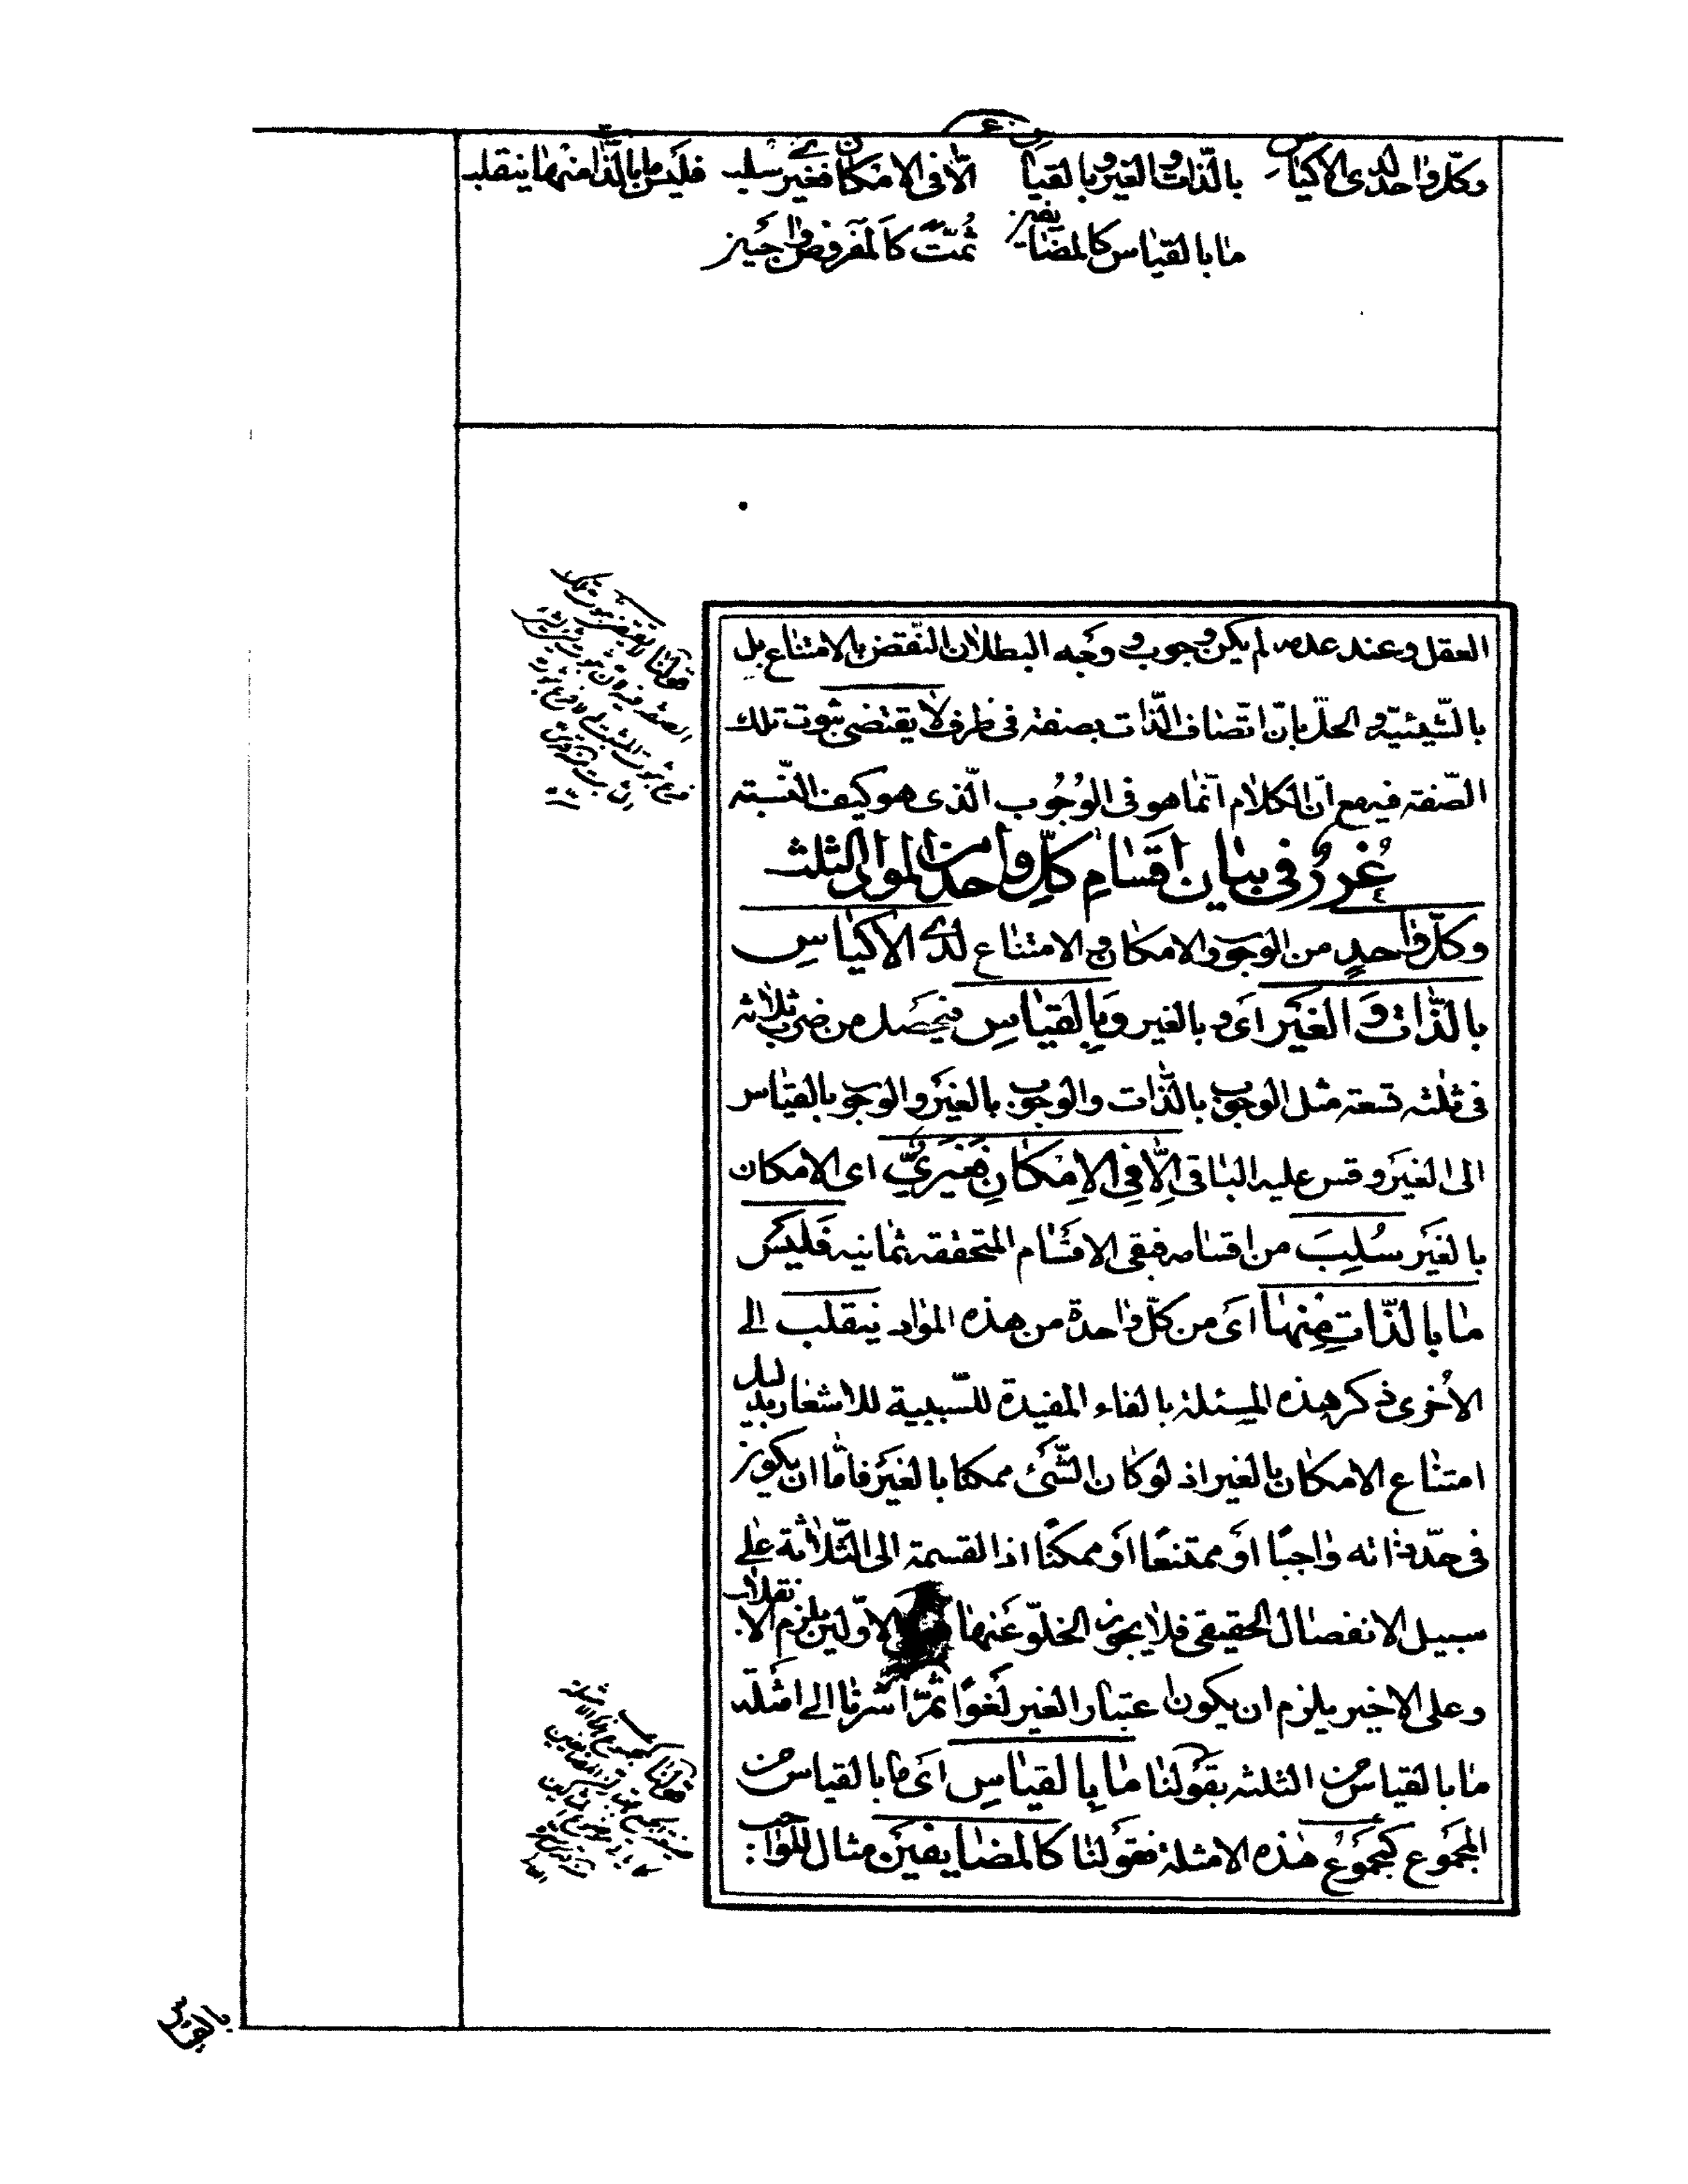 وكلّ واحد لدى الاكياس بالذات والغير وبالقياس الّا فى الامكان فغيرىّ سلب فليس ما بالذّات منها ينقلب
ما بالقياس كالمضايفين ثمّت كالمفروض واجبين
العقل وعند عدمه لم يكن وجوب ووجه البطلان النّقض بالامتناع بل
بالشّيئيّة والحلّ بانّ اتّصاف الذّات بصفته فى ظرف لا يقتضى ثبوت تلك
الصّفة فيه مع انّ الكلام انّما هو فى الوجُوب الّذى هو كيف النّسبة
غُررٌ فى بيان اقسَامِ كلّ واحد من المواد الثلث
وكلّ واحدٍ من الوجوب والامكان والامتناع لدى الاكياسِ
بالذّات وَ الغير اى وبالغير وَبِالقياسِ فيحصل من ضرب ثلاثة
فى ثلثه تسعة مثل الوجوب بالذّات والوجوب بالغير والوجوب بالقياس
الى الغير وقس عليه الباقى الّا فى الاِمْكانِ فَغيرىّ اى الامكان
بالغير سُلِبَ من اقسامه فبقى الاقسام المتحققة ثمانية فَليس
ما بالذّاتِ مِنها اى من كلّ واحدة من هذه المواد ينقلب الى
الاُخرى ذكر هذه المسئلة بالفاء المفيدة للسّببية للاشعار بدليل
امتناع الامكان بالغير اذ لو كان الشّئ ممكنا بالغير فامّا ان يكون
فى حدّ ذاته واجبًا او ممتنعًا او ممكنًا اذ القسمة الى الثّلاثة على
سبيل الانفصال الحقيقى فلا يجوز الخلوّ عنها الاوّلين يلزم الانقلاب
وعلى الاخير يلزم ان يكون اعتبار الغير لغوًا ثمّ اشرنا الى امثلة
ما بالقياس من الثلثه بقولنا ما بِالقياسِ اى ما بالقياس من
المجموع كمجموع هذه الامثلة فقولنا كالمضايفين مثال للواجب
قولنا
قولنا